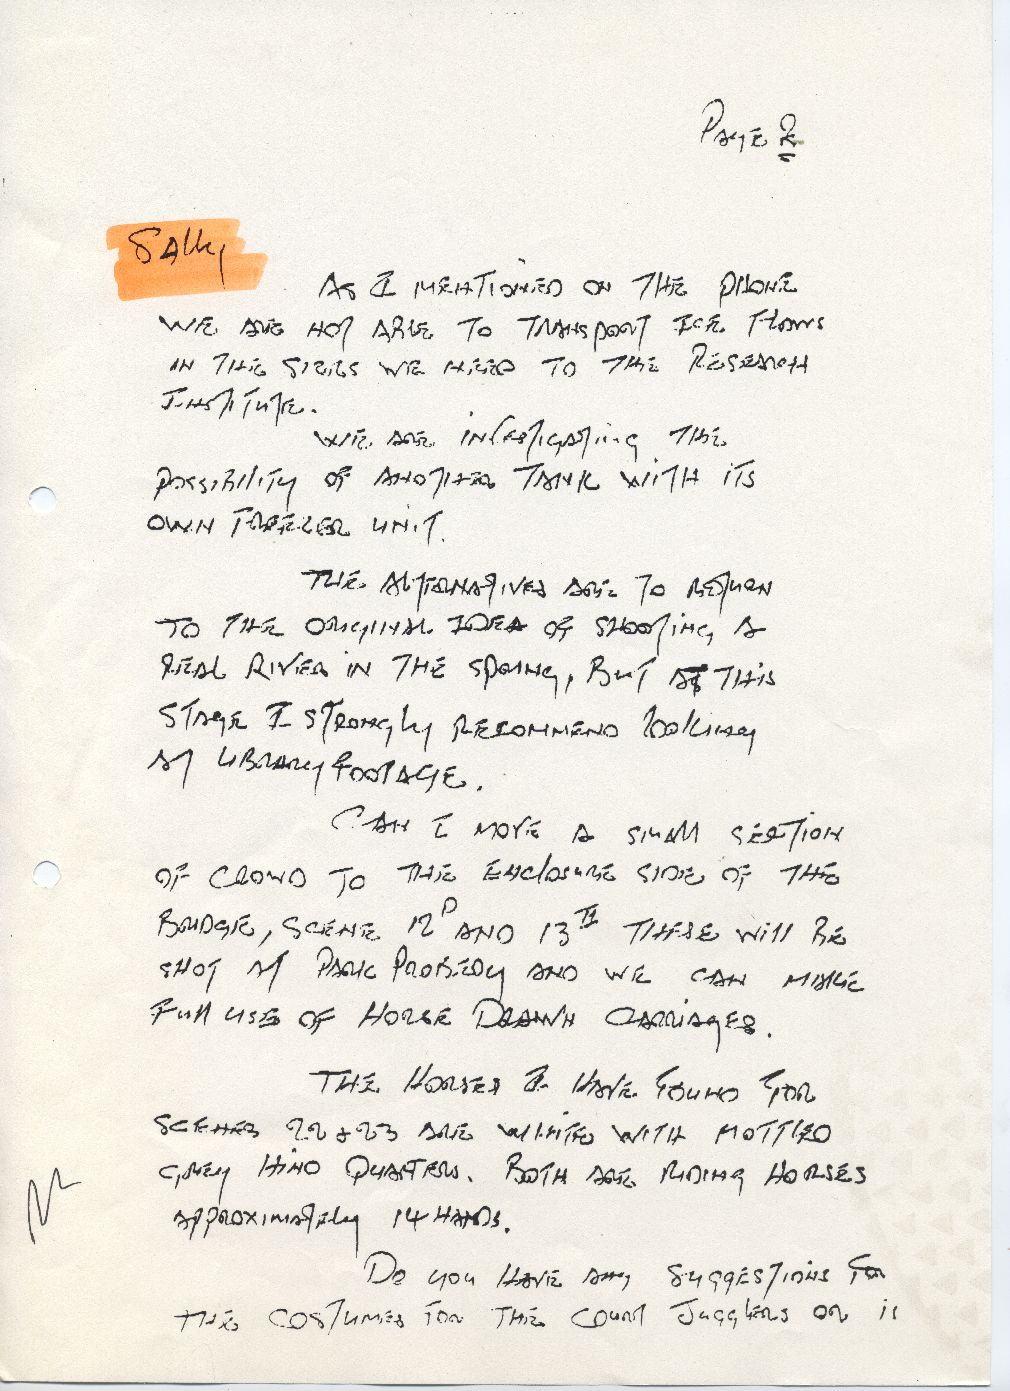 PAGE 2
SALLY
AS I MENTIONED ON THE PHONE
WE ARE NOT ABLE TO TRANSPORT ICE FLOWS
IN THE SIZES WE NEED TO THE RESEARCH
INSTITUTE.
WE ARE INVESTIGATING THE
POSSIBILITY OF ANOTHER TANK WITH ITS
OWN FREEZER UNIT.
THE ALTERNATIVES ARE TO RETURN
TO THE ORIGINAL IDEA OF SHOOTING A
REAL RIVER IN THE SPRING, BUT AT THIS
STAGE I STRONGLY RECOMMEND LOOKING
AT LIBRARY FOOTAGE.
CAN I MOVE A SMALL SECTION
OF CROWD TO THE ENCLOSURE SIDE OF THE
BRIDGE, SCENE 12D AND 13 THESE WILL BE
SHOT AT PARK AND WE CAN MAKE
FULL USE OF HORSE DRAWN CARRIAGES.
THE HORSES I HAVE FOUND FOR
SCENES 22 & 23 ARE WHITE WITH MOTTLED
GREY HIND QUARTERS. BOTH ARE RIDING HORSES
APPROXIMATELY 14 HANDS.
DO YOU HAVE ANY SUGGESTIONS FOR
THE COSTUMES FOR THE COURT JUGGLERS OR IS